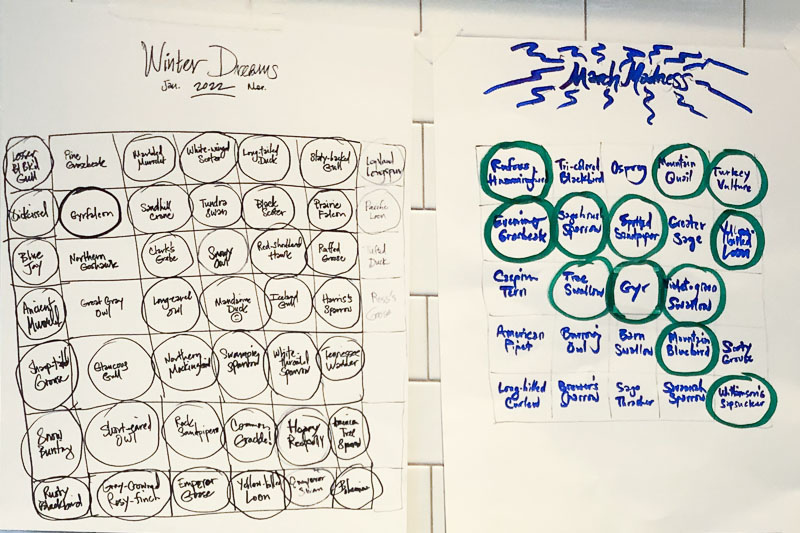 Winter Dreams
Jan. 2022 Mar.
Lesser Bl Bk'd Gull
Pine Grosbeak
Marbled Murrelet
White-winged Scoter
Long-tailed Duck
Slaty-backed Gull
Lapland Longspur
Dickcissel
Gyrfalcon
Sandhill Crane
Tundra Swan
Black Scoter
Prairie Falcon
Pacific Loon
Blue Jay
Northern Goshawk
Clark's Grebe
Snowy Owl
Red-shouldered Hawk
Ruffed Grouse
Tufted Duck
Ancient Murrelet
Great Gray Owl
Long-eared Owl
Mandarin Duck
Iceland Gull
Harris's Sparrow
Ross's Goose
Sharp-tailed Grouse
Glaucous Gull
Northern Mockingbird
Swamp Sparrow
White-throated Sparrow
Tennessee Warbler
Snow Bunting
Short-eared Owl
Rock Sandpiper
Common Grackle
Hoary Redpoll
American Tree Sparrow
Rusty Blackbird
Gray-Crowned Rosy-finch
Emperor Goose
Yellow-billed Loon
Bohemian
March Madness
Rufous Hummingbird
Tri-colored Blackbird
Osprey
Mountain Quail
Turkey Vulture
Evening Grosbeak
Sagebrush Sparrow
Spotted Sandpiper
Greater Sage
Yellow-billed Loon
Caspian Tern
Tree Swallow
Gyr
Violet-green Swallow
American Pipit
Burrowing Owl
Barn Swallow
Mountain Bluebird
Sooty Grouse
Long-billed Curlew
Brewer's Sparrow
Sage Thrasher
Savannah Sparrow
Williamson's Sapsucker